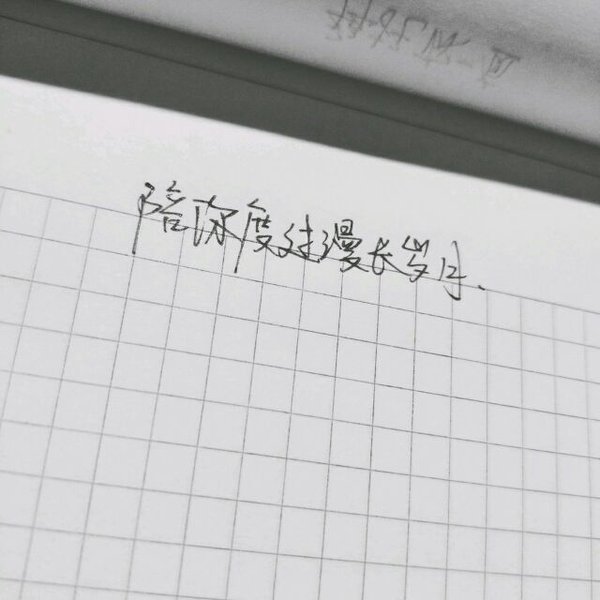 陪你度过漫长岁月.